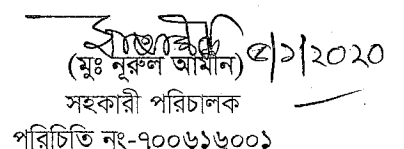 ৫/১/২০২০
(মুঃ নূরুল আমীন)
সহকারী পরিচালক
পরিচিতি নং-৭০০৬১৬০০১